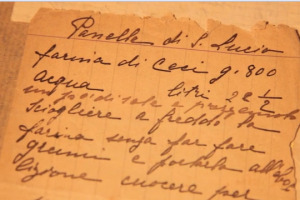 Panelle di S. Lucia
farina di Ceci g. 800
acqua litri 2 e ½
un po' di sale e prezzemolo
Sciogliere a freddo la
farina senza far fare
grumi e portarla all'ebol
lizione cuocere per